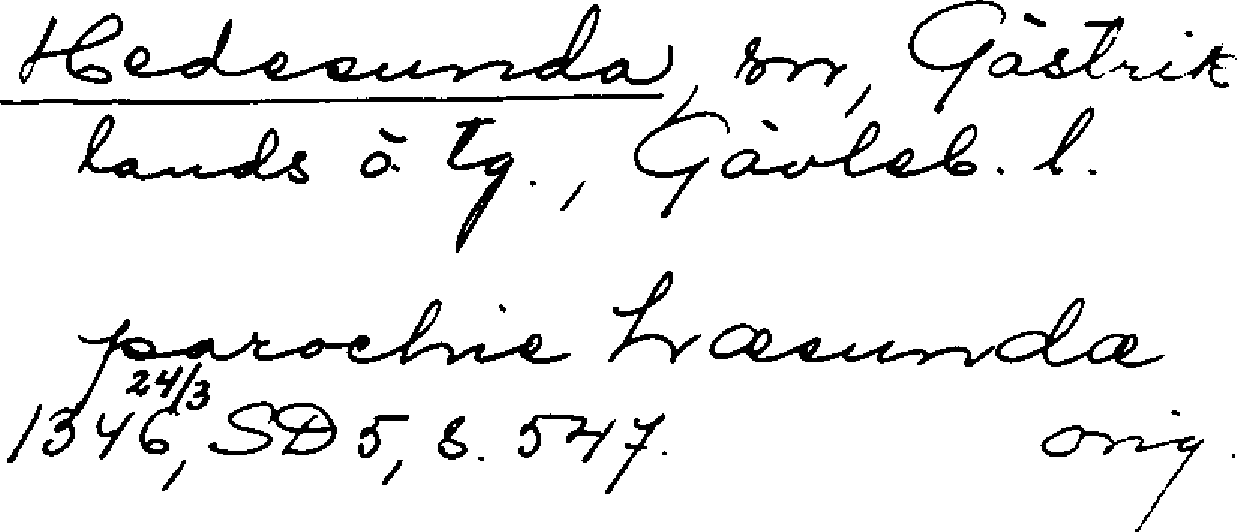 Hedesunda, sn, Gästrik
lands ö. tg., Gävleb. l.
parochie hræsundæ
24/3
1346, SD 5, s. 547. orig.